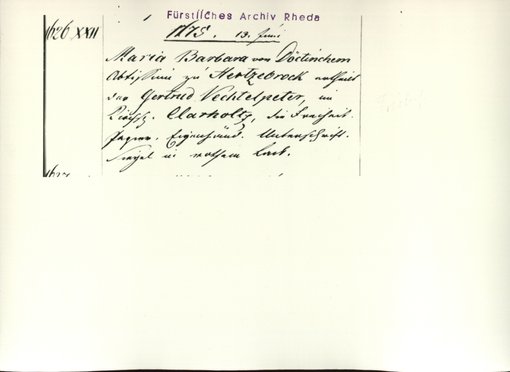 Fürstliches Archiv Rheda
1626 XXII
1675. 13. Juni
Maria Barbara von Döetinchem
Abtissin zu Hertzebrock ertheilt
der Gertrud Vechtelpeter, im
Kirchsp. Clarholtz, die Freiheit.
Papier. Eigenhänd. Unterschrift.
Siegel in rothem Lack.